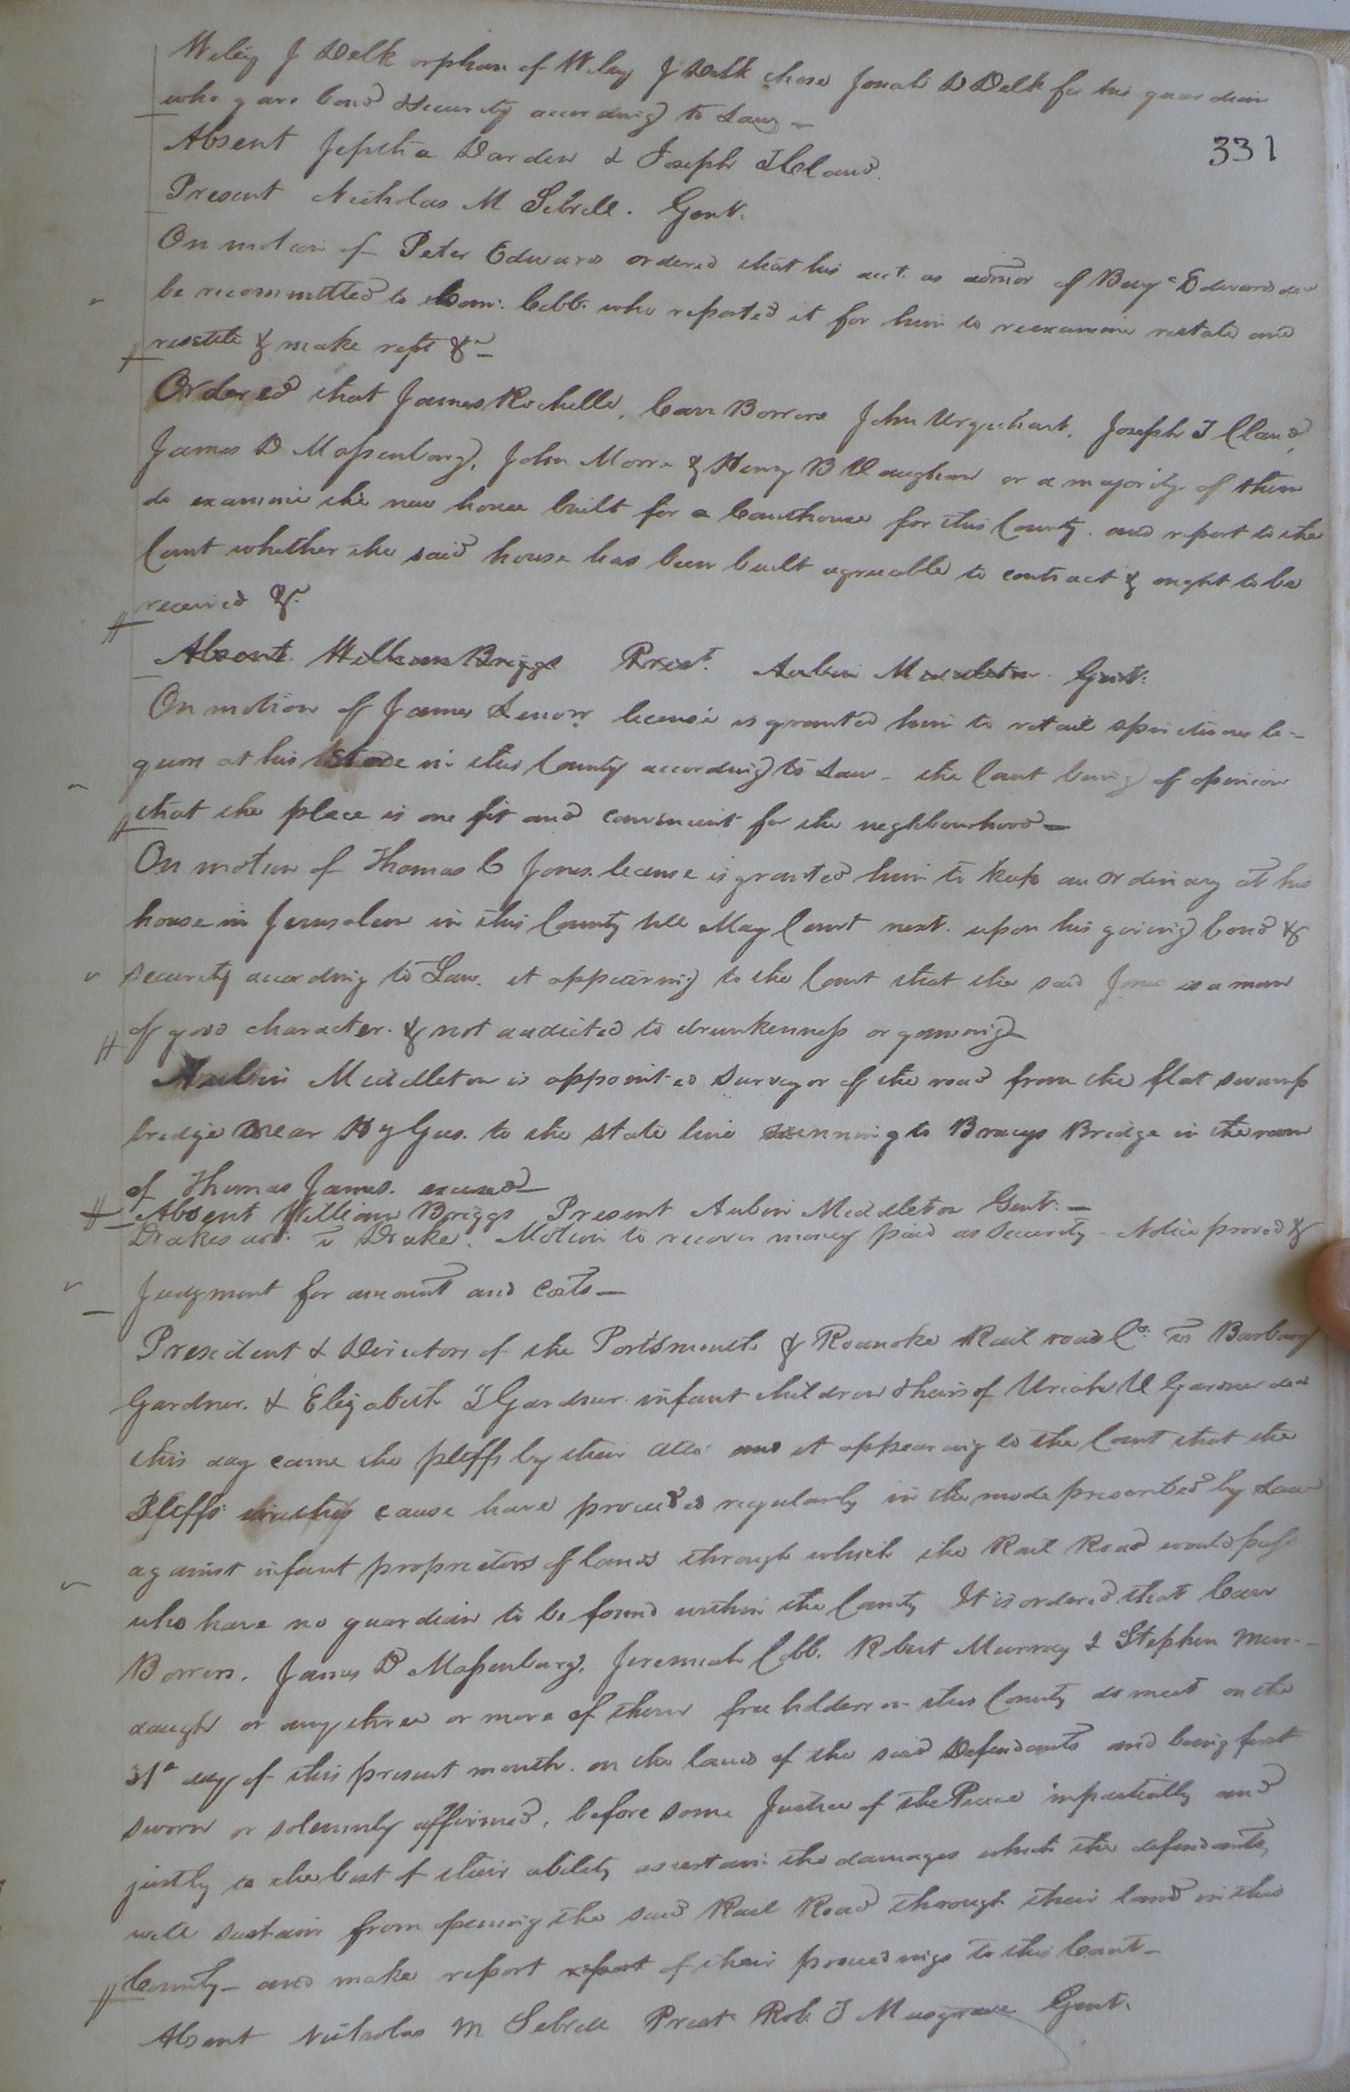 Wiley J Delk orphan of Wiley J Delk chose Josiah D Delk for his guardian
who gave bond & Security according to Law —
331
Absent Jeptha Darden & Joseph T Claud.
Present Nicholas M Sebrell. Gent.
On motion of Peter Edwards ordered that his acct. as admor of Benja Edwards decd
be recommitted to Cobb. who reported it for him to reexamine restate and
resettle & make rept &c —
Ordered that James Rochelle, Carr Bowers John Urquhart, Joseph T Claud,
James D Massenburg, John Moore & Henry B Vaughan or a majority of them
do examine the new house built for a Courthouse for this County. and report to the
Court whether the said house has been built agreeable to contract & ought to be
received &c.
Absent William Briggs Prest. Aubin Middleton Gent.
On motion of James license is granted him to retail spirituous li-
quors at his Store in this County according to Law – the Court being of opinion
that the place is one fit and convenient for the neighbourhood —
On motion of Thomas C Jones license is granted him to keep an Ordinary at his
house in Jerusalem in this County till May Court next. upon his giving bond &
security according to Law. it appearing to the Court that the said Jones is a man
of good character. & not addicted to drunkenness or gaming —
Aubin Middleton is appointed Surveyor of the road from the flat swamp
bridge near Hy Gees. to the State line running to Bridge in the room
of Thomas James. excused —
Absent William Briggs Present Aubin Middleton Gent. —
Drakes vs Drake. Motion to recover money paid as Security – Notice proved &
Judgment for amount and Costs —
President & Directors of the Portsmouth & Roanoke Rail road Co. vs Barbary
Gardner. & Elizabeth T Gardner. infant children & heirs of Uriah V Gardner decd
this day came the pltffs by their atto. and it appearing to the Court that the
Pltffs in this cause have proceeded regularly in the mode prescribed by Law
against infant proprietors of lands through which the Rail Road would pass
who have no guardian to be found within the County It is ordered that Carr
Bowers, James D Massenburg, Jeremiah Cobb. Robert Murray & Stephen
or any three or more of them freeholders in this County do meet on the
31st day of this present month. on the lands of the said Defendants and being first
sworn or solemnly affirmed, before some Justice of the Peace impartially and
justly to the best of their ability ascertain the damages which the defendants,
will sustain from opening the said Rail Road through their land in this
County – and make report report of their proceedings to this Court –
Absent Nicholas M Sebrell Prest. Rob. T Musgrave Gent.